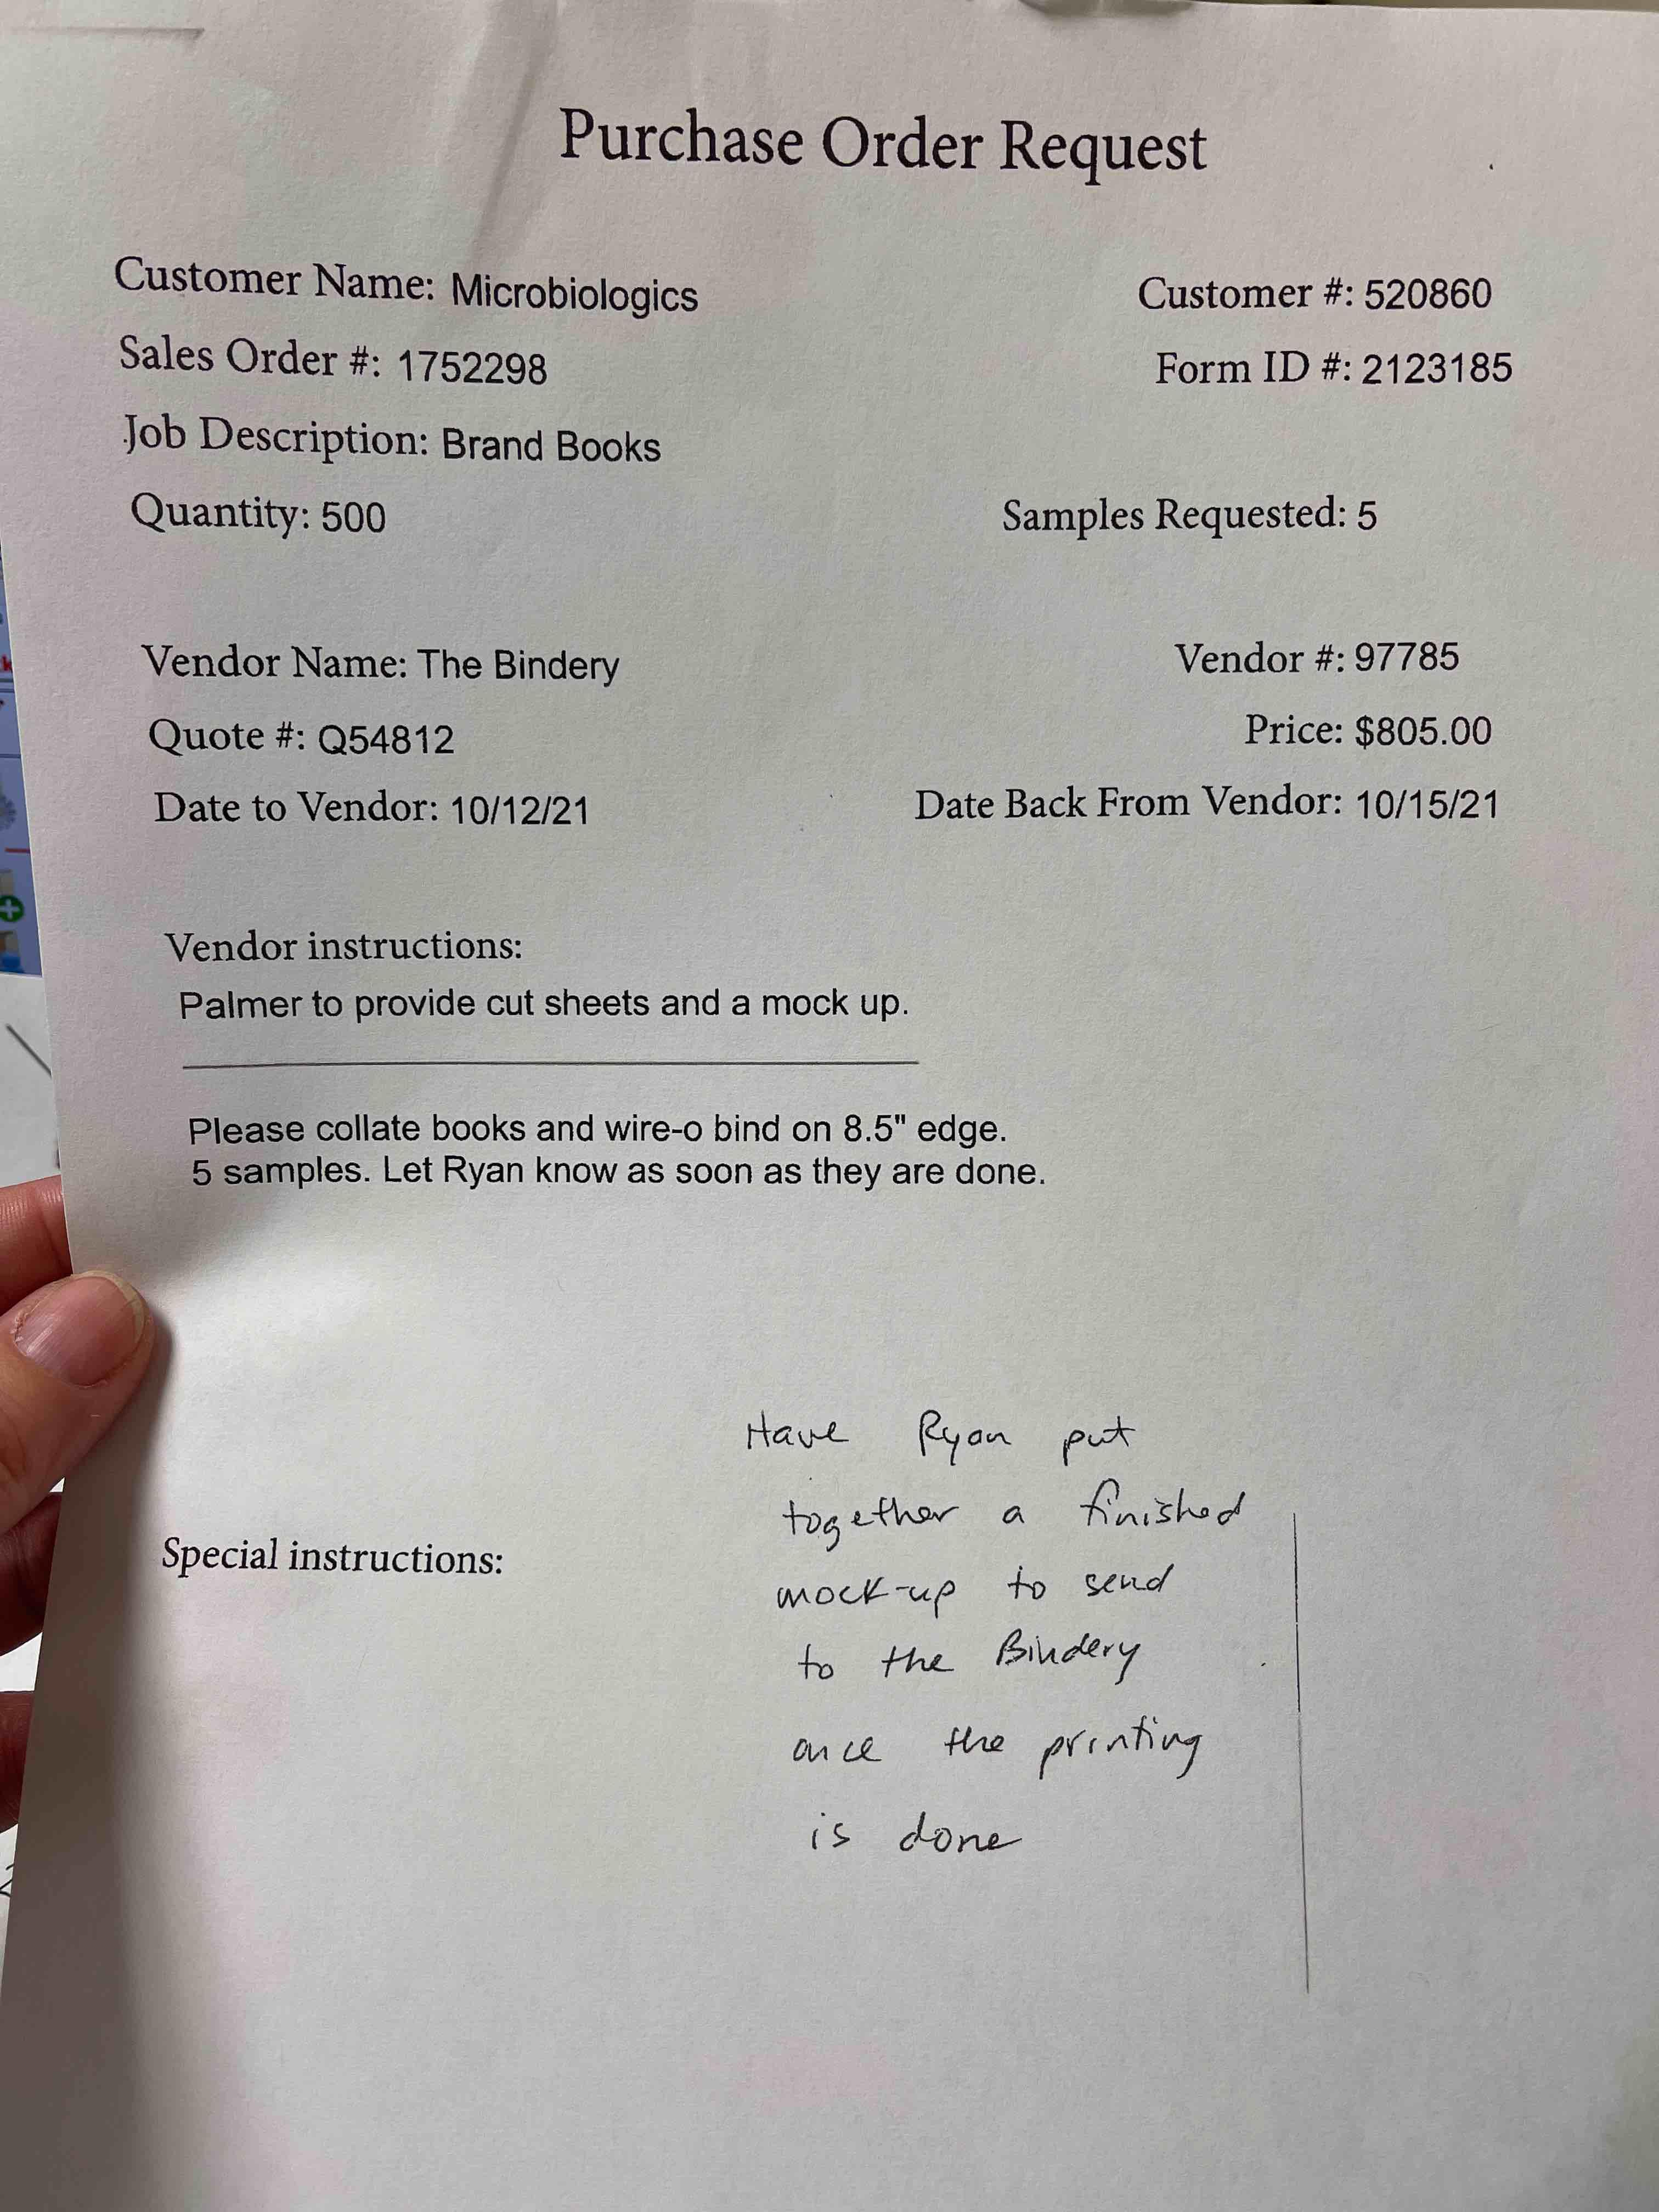 Purchase Order Request
Customer Name: Microbiologics
Customer #: 520860
Sales Order #: 1752298
Form ID #: 2123185
Job Description: Brand Books
Quantity: 500
Samples Requested: 5
Vendor Name: The Bindery
Vendor #: 97785
Quote #: Q54812
Price: $805.00
Date to Vendor: 10/12/21
Date Back From Vendor: 10/15/21
Vendor instructions:
Palmer to provide cut sheets and a mock up.
Please collate books and wire-o bind on 8.5" edge.
5 samples. Let Ryan know as soon as they are done.
Special instructions:
Have Ryan put
together a finished
mock-up to send
to the Bindery
once the printing
is done